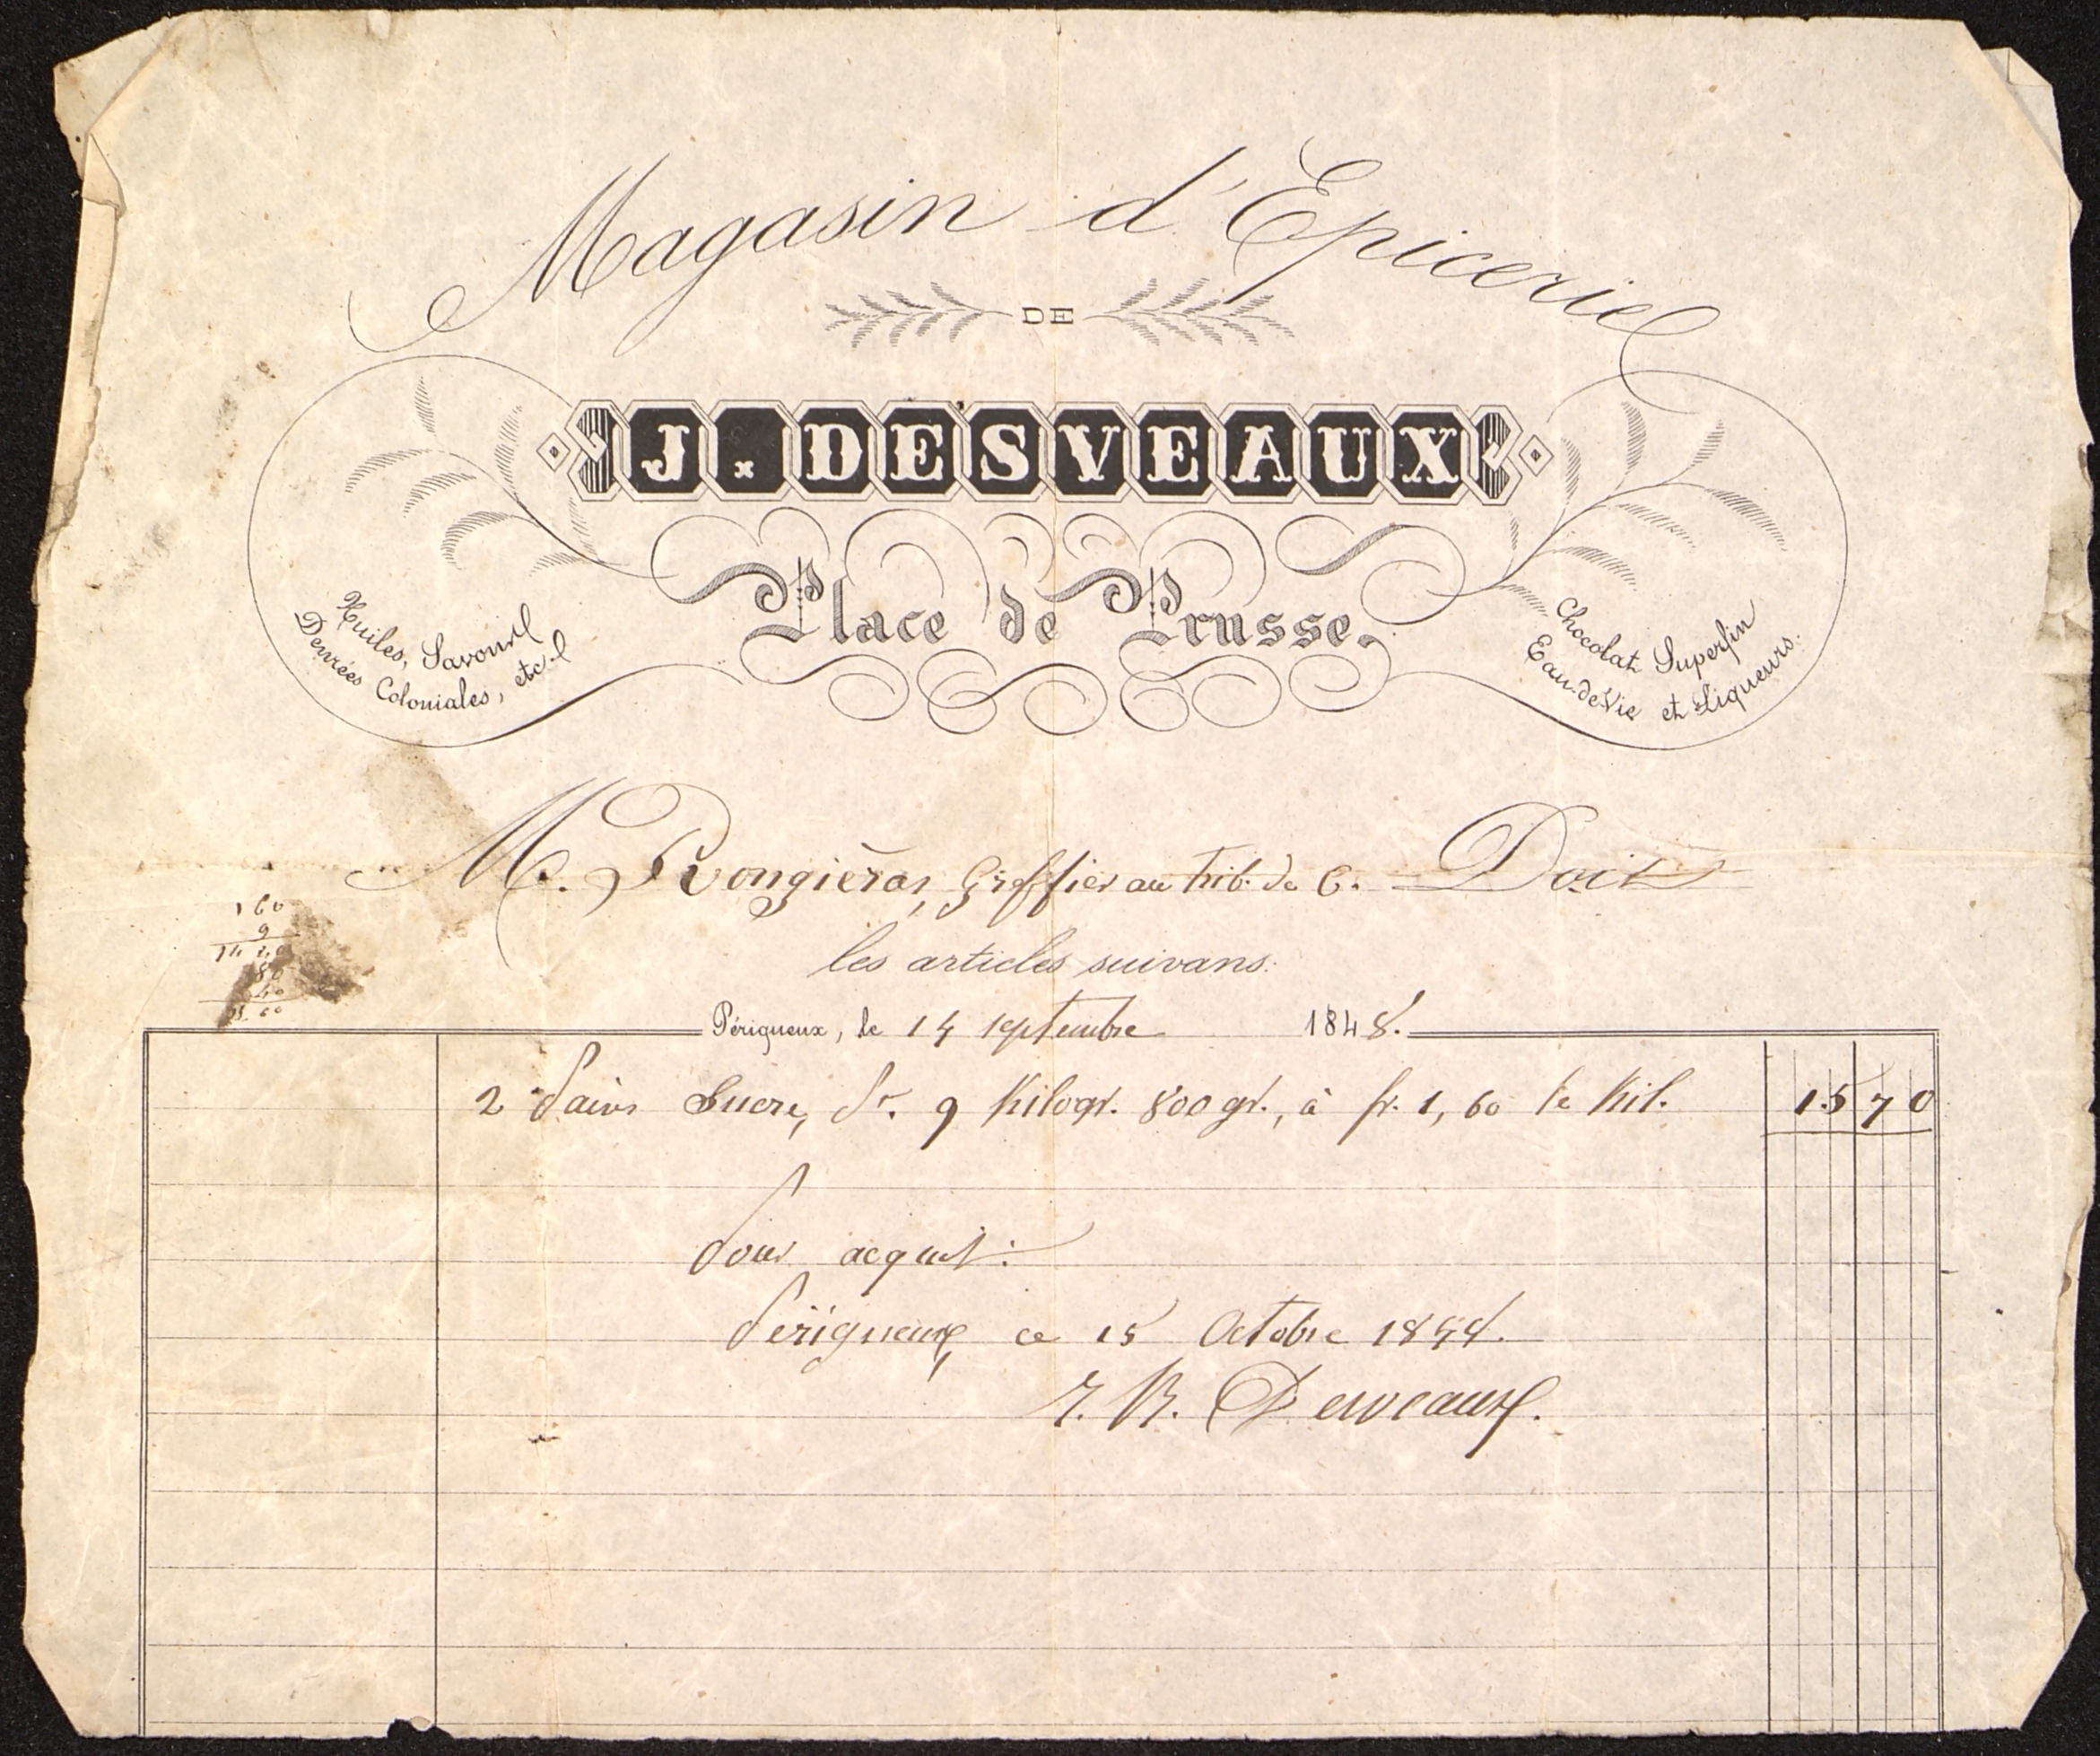 Magasin d'Epicerie
DE
J. DESVEAUX
Place de Prusse.
Huiles, Savons
Denrées Coloniales, etc.
Chocolat Superfin
Eau-de-Vie et Liqueurs.
M. Rongiéras, Greffier au trib. de C. Doit
les articles suivans:
160
9
14 40
80
40
15 60
Périgueux, le 14 septembre 1848.
2 Pains Sucre, Pt. 9 Kilogr. 800 gr., à fr. 1,60 le Kil. 15 70
Pour acquit:
Périgueux, ce 15 Octobre 1848.
Desveaux.